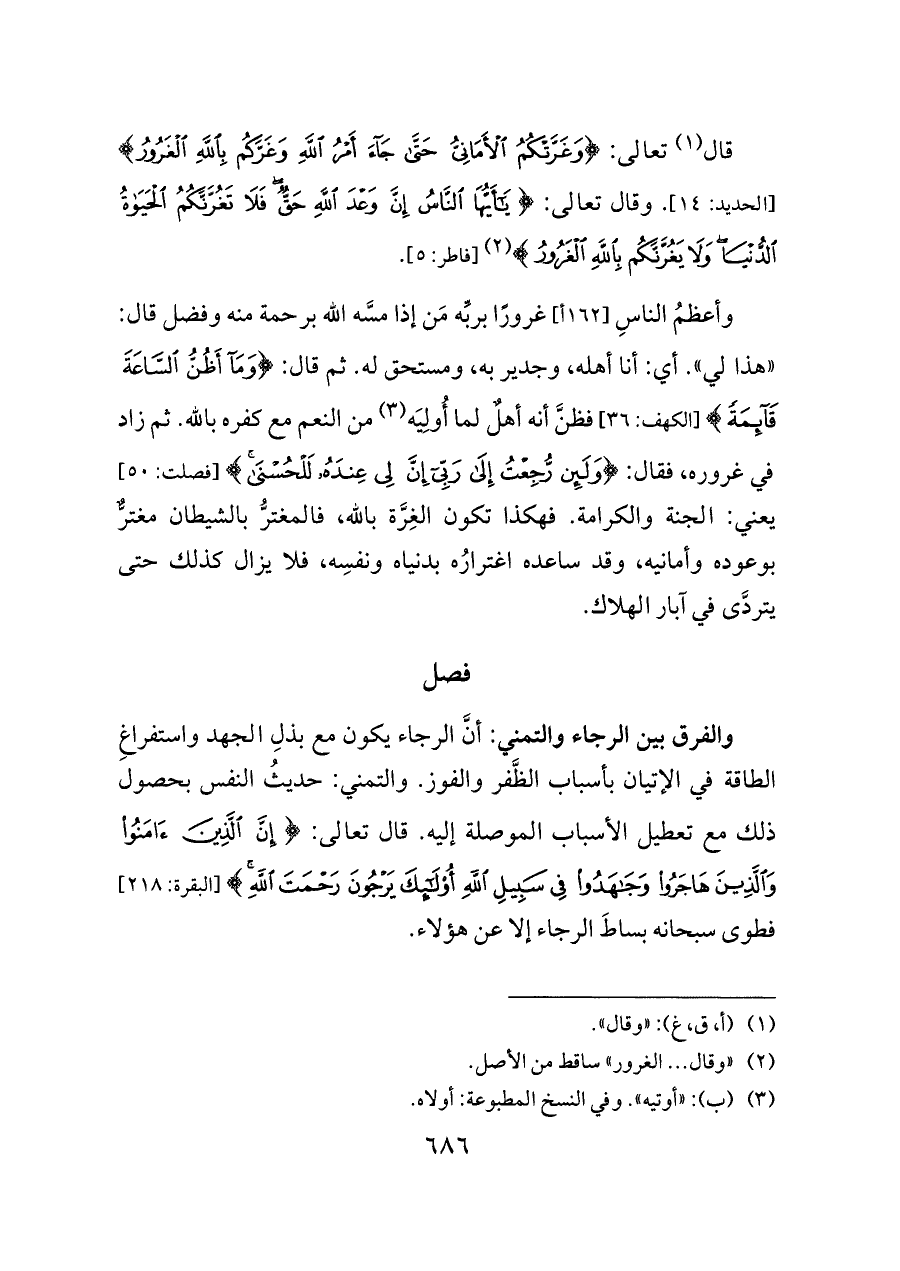 قال(١) تعالى: ﴿وَغَرَّتْكُمُ ٱلْأَمَانِىُّ حَتَّىٰ جَآءَ أَمْرُ ٱللَّهِ وَغَرَّكُم بِٱللَّهِ ٱلْغَرُورُ﴾
[الحديد: ١٤]. وقال تعالى: ﴿يَٰٓأَيُّهَا ٱلنَّاسُ إِنَّ وَعْدَ ٱللَّهِ حَقٌّۖ فَلَا تَغُرَّنَّكُمُ ٱلْحَيَوٰةُ
ٱلدُّنْيَاۖ وَلَا يَغُرَّنَّكُم بِٱللَّهِ ٱلْغَرُورُ﴾(٢) [فاطر: ٥].
وأعظمُ الناسِ [١٦٢أ] غرورًا بربِّه مَن إذا مسَّه الله برحمة منه وفضل قال:
«هذا لي». أي: أنا أهله، وجدير به، ومستحق له. ثم قال: ﴿وَمَآ أَظُنُّ ٱلسَّاعَةَ
قَآئِمَةً﴾ [الكهف: ٣٦] فظنَّ أنه أهلٌ لما أُولِيَه(٣) من النعم مع كفره بالله. ثم زاد
في غروره، فقال: ﴿وَلَئِن رُّجِعْتُ إِلَىٰ رَبِّىٓ إِنَّ لِى عِندَهُۥ لَلْحُسْنَىٰۚ﴾ [فصلت: ٥٠]
يعني: الجنة والكرامة. فهكذا تكون الغِرَّة بالله، فالمغترُّ بالشيطان مغترٌّ
بوعوده وأمانيه، وقد ساعده اغترارُه بدنياه ونفسِه، فلا يزال كذلك حتى
يتردَّى في آبار الهلاك.
فصل
والفرق بين الرجاء والتمني: أنَّ الرجاء يكون مع بذلِ الجهد واستفراغِ
الطاقة في الإتيان بأسباب الظَّفر والفوز. والتمني: حديثُ النفس بحصول
ذلك مع تعطيل الأسباب الموصلة إليه. قال تعالى: ﴿إِنَّ ٱلَّذِينَ ءَامَنُوا۟
وَٱلَّذِينَ هَاجَرُوا۟ وَجَٰهَدُوا۟ فِى سَبِيلِ ٱللَّهِ أُو۟لَٰٓئِكَ يَرْجُونَ رَحْمَتَ ٱللَّهِۚ﴾ [البقرة: ٢١٨]
فطوى سبحانه بساطَ الرجاء إلا عن هؤلاء.
(١) (أ، ق، غ): «وقال».
(٢) «وقال... الغرور» ساقط من الأصل.
(٣) (ب): «أوتيه». وفي النسخ المطبوعة: أولاه.
٦٨٦